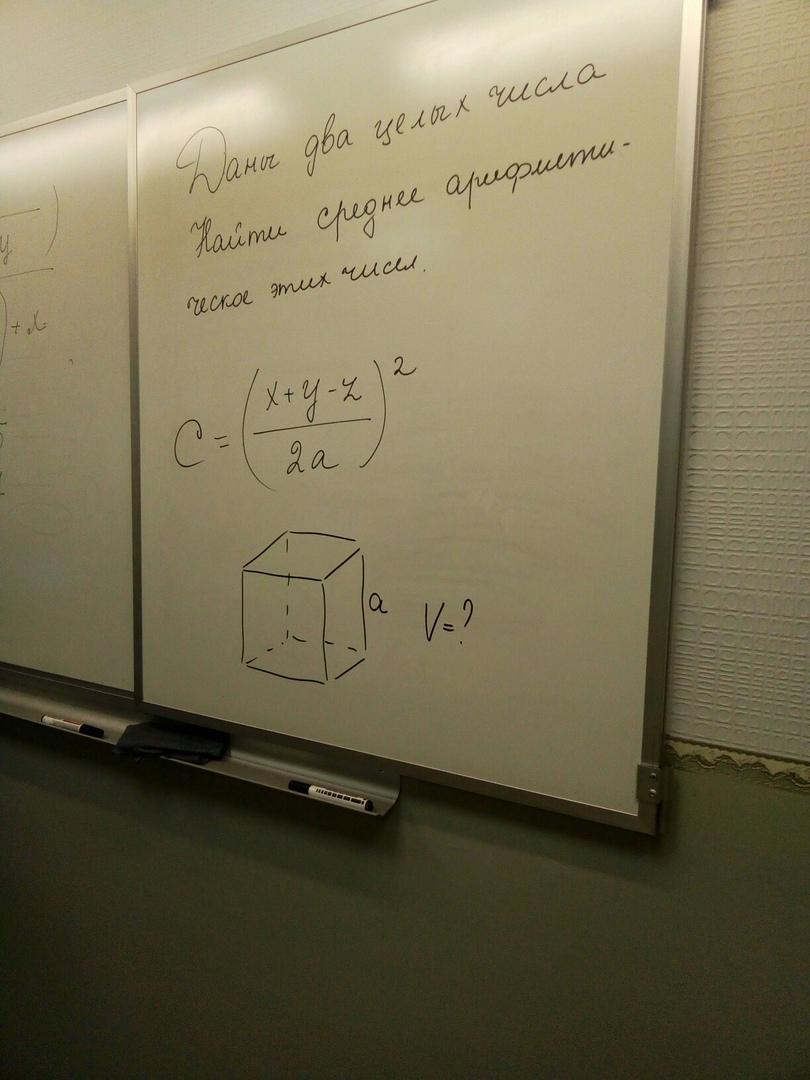 Даны два целых числа
Найти среднее арифмети-
ческое этих чисел.
C = (x+y-z / 2a)²
a
V=?
y
)
+ x